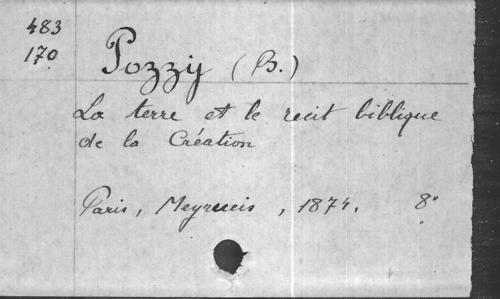 483
170
Pozzy (B.)
La terre et le recit biblique
de la Création
Paris, Meyrueis, 1874. 8°